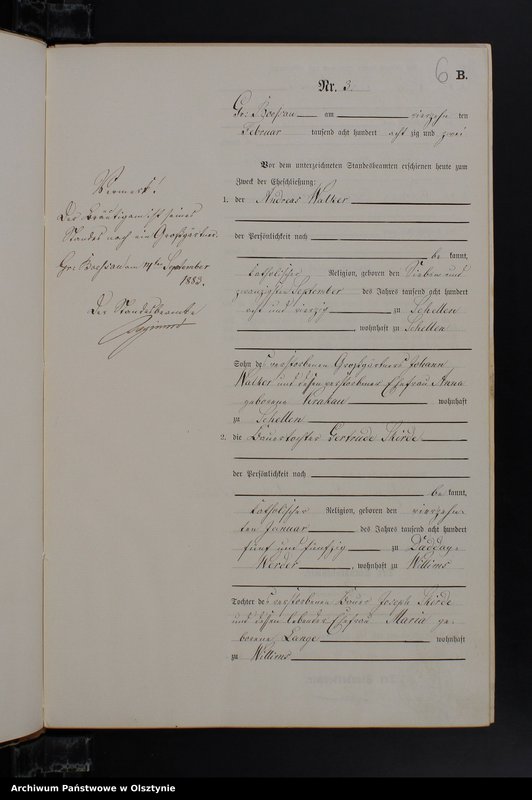 6 B.
Nr. 3.
Gr: Boeßau am vierzehn ten
Februar tausend acht hundert acht zig und zwei
Vor dem unterzeichneten Standesbeamten erschienen heute zum
Zweck der Eheschließung:
1. der Andreas Walker
der Persönlichkeit nach
be kannt,
katholischer Religion, geboren den Sieben und
zwanzigsten September des Jahres tausend acht hundert
acht und vierzig zu Schellen
, wohnhaft zu Schellen
Sohn des verstorbenen Großgärtners Johann
Walker und dessen verstorbener Ehefrau Anna
geborene wohnhaft
zu Schellen
2. die Bauertochter Gertrude
der Persönlichkeit nach
be kannt,
katholischer Religion, geboren den vierzehn
ten Januar des Jahres tausend acht hundert
fünf und fünfzig zu
Werder, wohnhaft zu Willims
Tochter des verstorbenen Bauer Joseph
und dessen lebender Ehefrau Maria ge-
borene Lange wohnhaft
zu Willims
Vermerk!
Der Bräutigam ist seines
Standes nach ein Großgärtner.
Gr: Boeßau am ten September
1882.
Der Standesbeamte
Archiwum Państwowe w Olsztynie